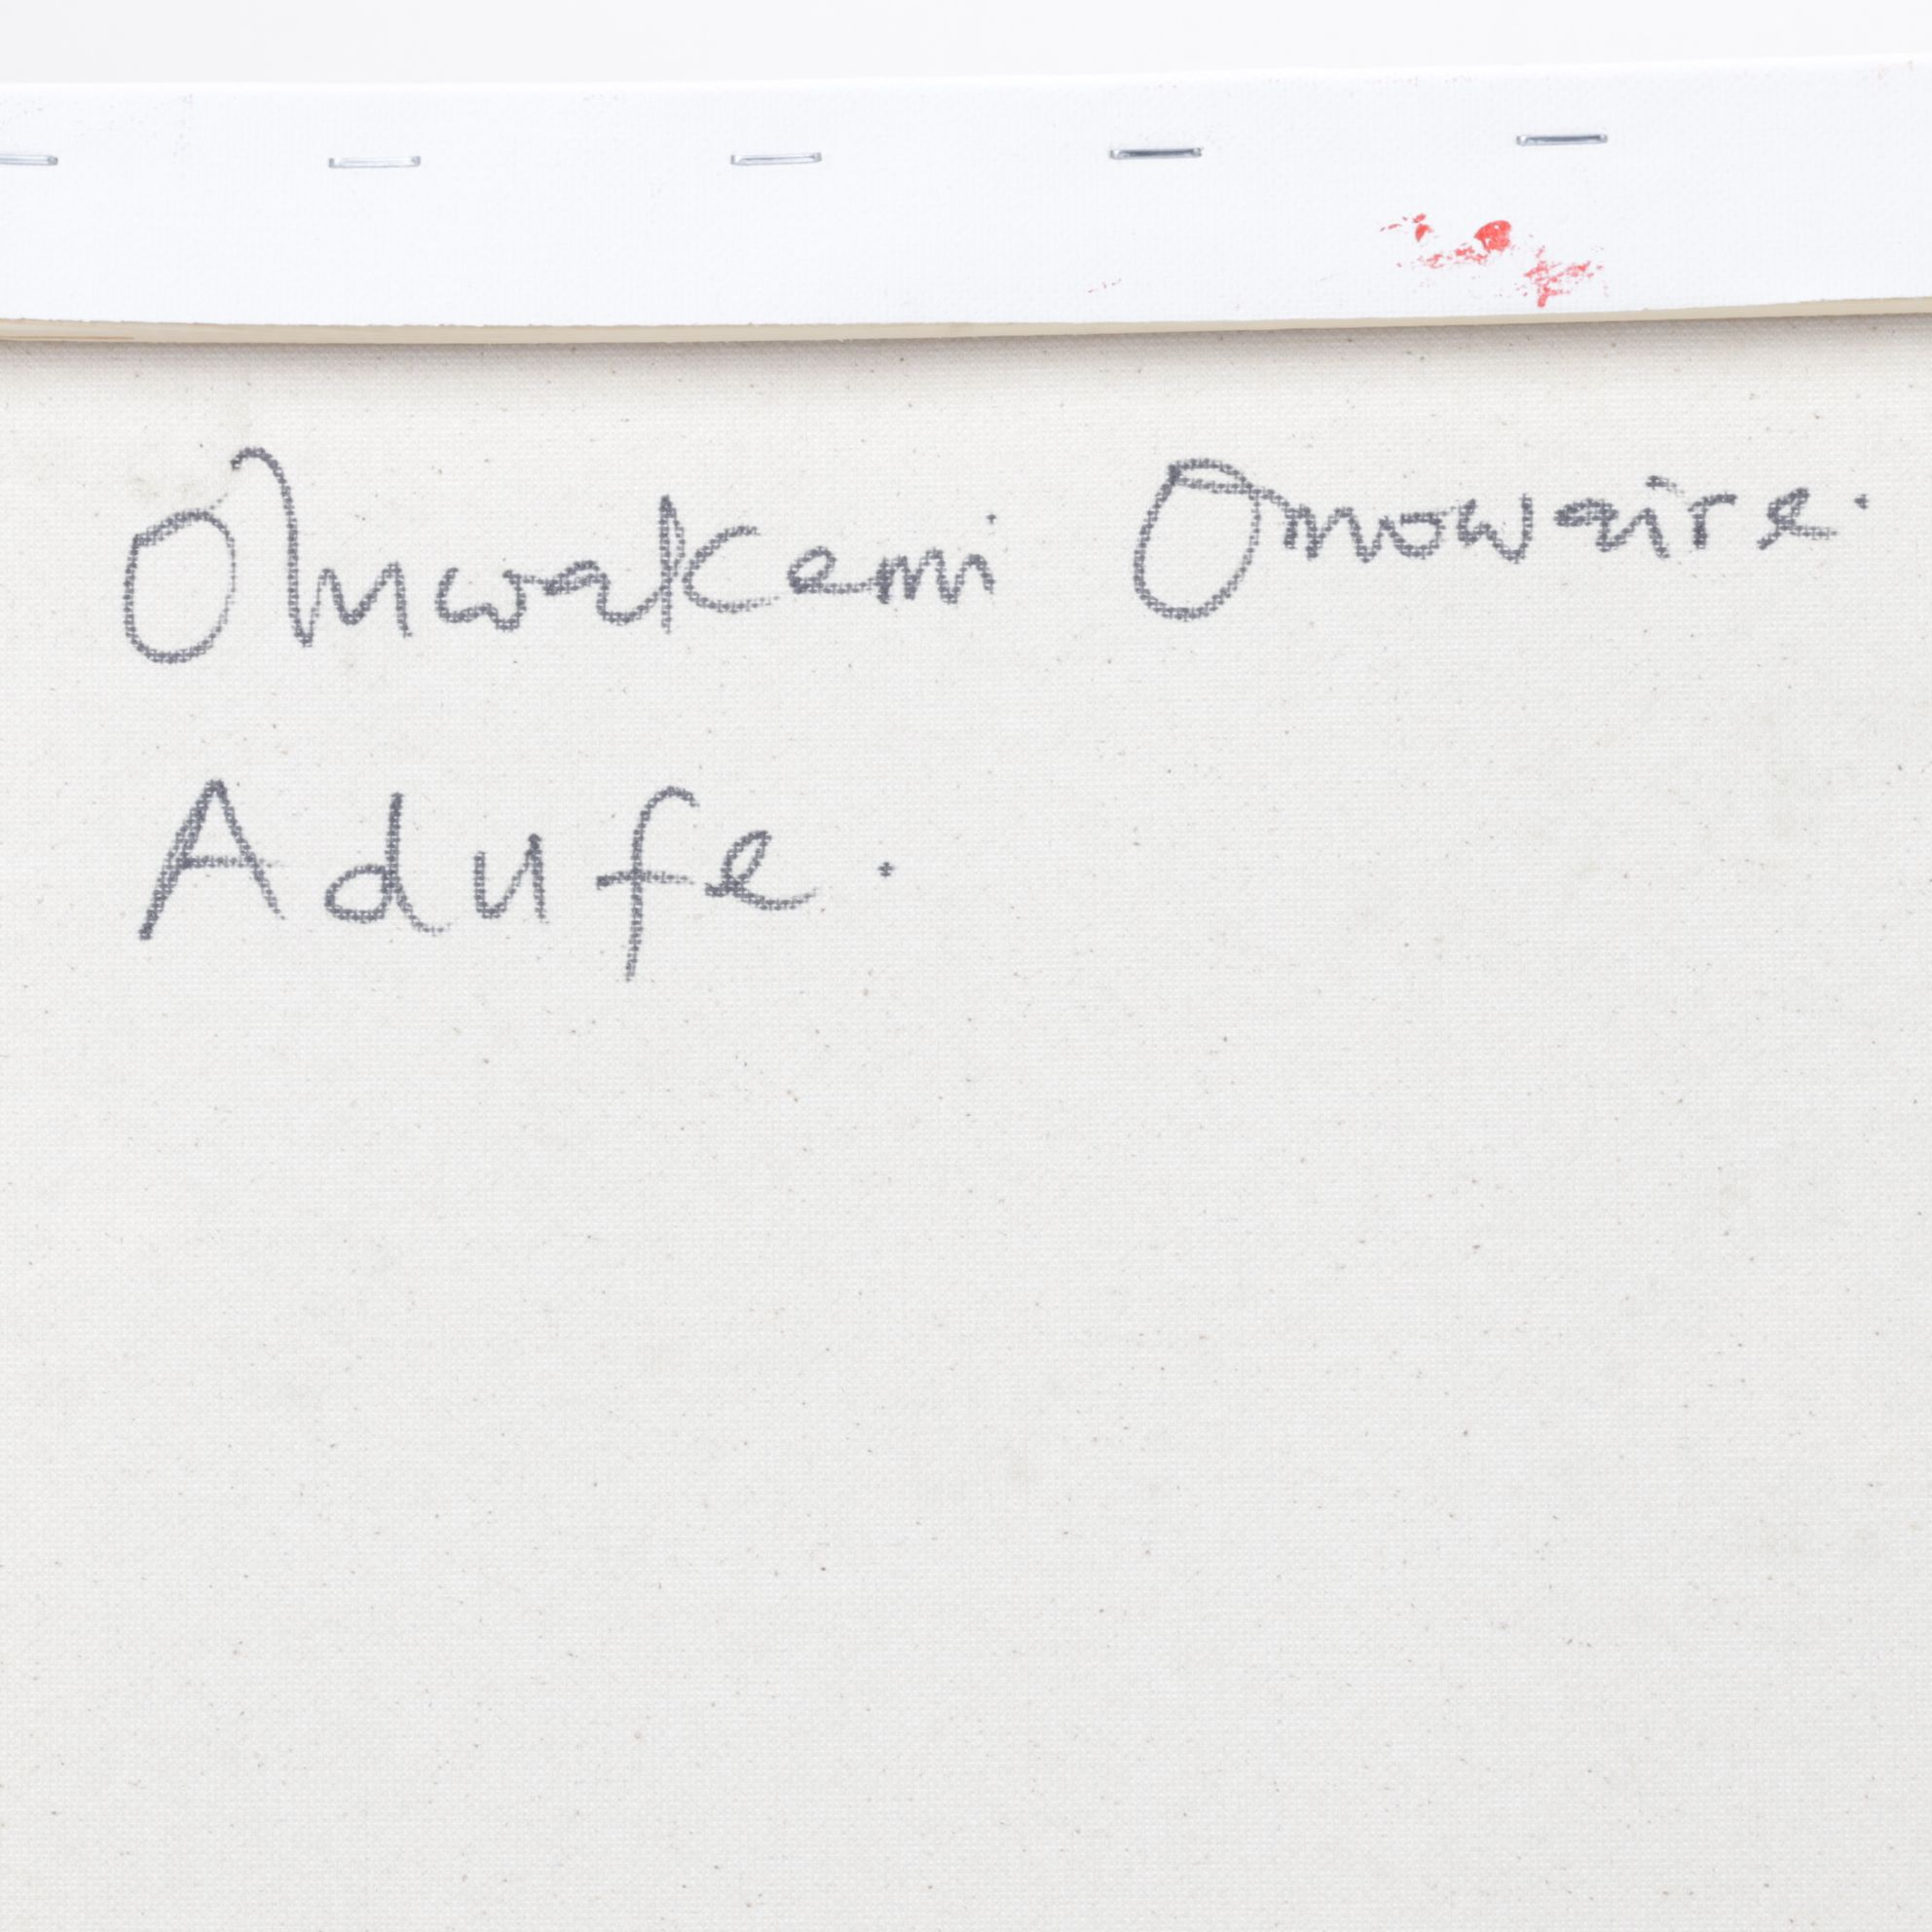 Oluwakemi Omowaire.
Adufe.